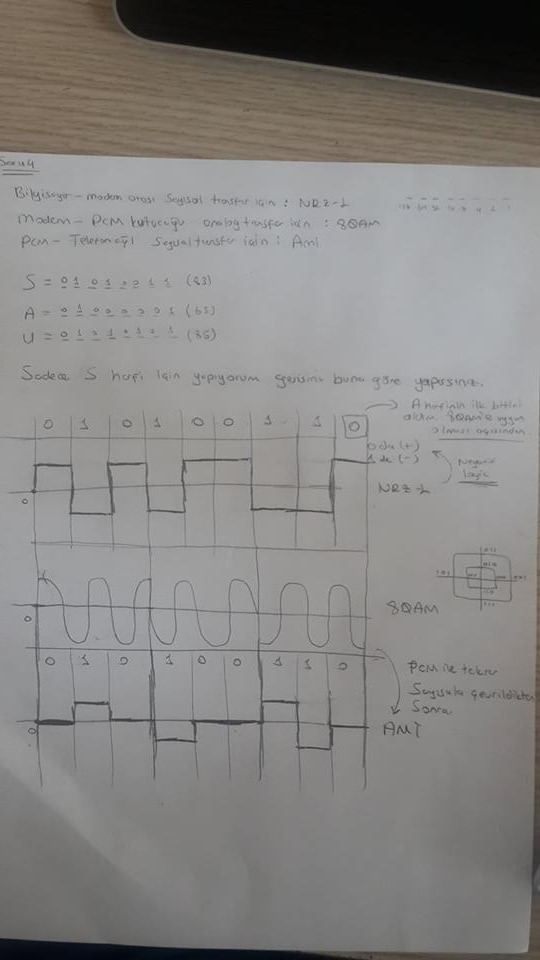 Soru 4
Bilgisayar - modem arası Sayısal transfer için : NRZ-L
Modem - PCM kutucuğu analog transfer için : 8QAM
PCM - Telefon ağı Sayısal transfer için : Ami
S = 0 1 0 1 0 0 1 1 (83)
A = 0 1 0 0 0 0 0 1 (65)
U = 0 1 0 1 0 1 0 1 (85)
Sadece S harfi için yapıyorum gerisini buna göre yaparsınız.
0 1 0 1 0 0 1 1 0
A harfinin ilk bitini
aldım. 8QAM'e uygun
olması açısından
0 da (+)
1 de (-)
Negatif
Logic
NRZ-L
0
8QAM
0
0 1 0 1 0 0 1 1 0
PCM ile tekrar
Sayısala çevrildikten
Sonra
AMİ
0